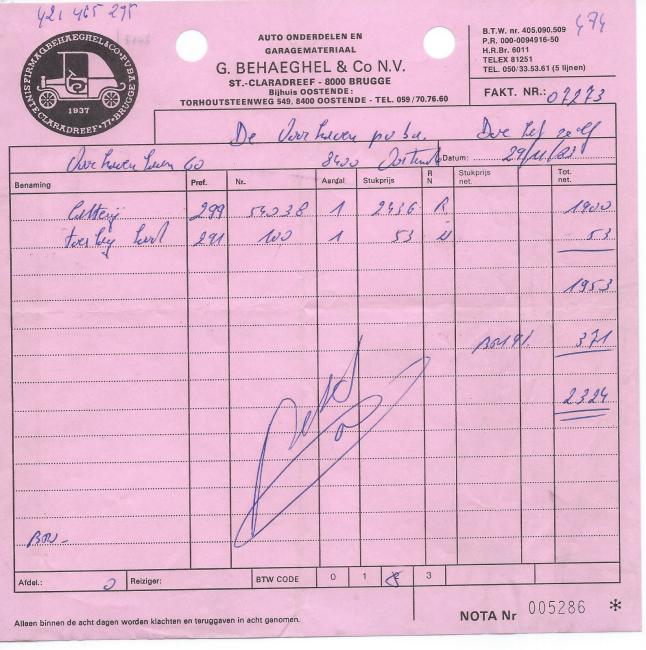 421 465 295
474
NISFIRMAG.BEHAEGHEL&CO PVBA
1937
SINTE CLARADREEF 77 BRUGGE
AUTO ONDERDELEN EN
GARAGEMATERIAAL
G. BEHAEGHEL & Co N.V.
ST.-CLARADREEF - 8000 BRUGGE
Bijhuis OOSTENDE:
TORHOUTSTEENWEG 549, 8400 OOSTENDE - TEL. 059/70.76.60
B.T.W. nr. 405.090.509
P.R. 000-0094916-50
H.R.Br. 6011
TELEX 81251
TEL. 050/33.53.61 (5 lijnen)
FAKT. NR.: 07273
De Voorhaven pvba. Doe het zelf
Voorhavenlaan 60 8400 Oostende Datum: 29/11/83
Benaming Pref. Nr. Aantal Stukprijs R N Stukprijs net. Tot. net.
batterij 299 54038 1 2436 R 1900
toeslag 291 100 1 53 N 53
1953
BTW 19% 371
2324
BTW-
Afdel.: 0 Reiziger: BTW CODE 0 1 2 3
Alleen binnen de acht dagen worden klachten en teruggaven in acht genomen.
NOTA Nr 005286 *